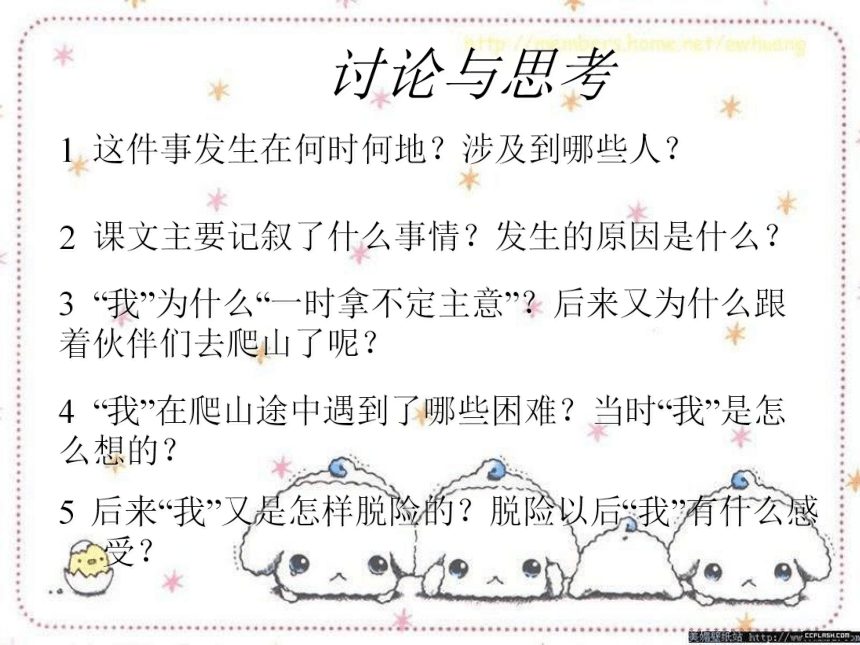 http://members.home.net/ewhuang
讨论与思考
1 这件事发生在何时何地？涉及到哪些人？
2 课文主要记叙了什么事情？发生的原因是什么？
3 “我”为什么“一时拿不定主意”？后来又为什么跟
着伙伴们去爬山了呢？
4 “我”在爬山途中遇到了哪些困难？当时“我”是怎
么想的？
5 后来“我”又是怎样脱险的？脱险以后“我”有什么感
受？
CCFLASH.COM